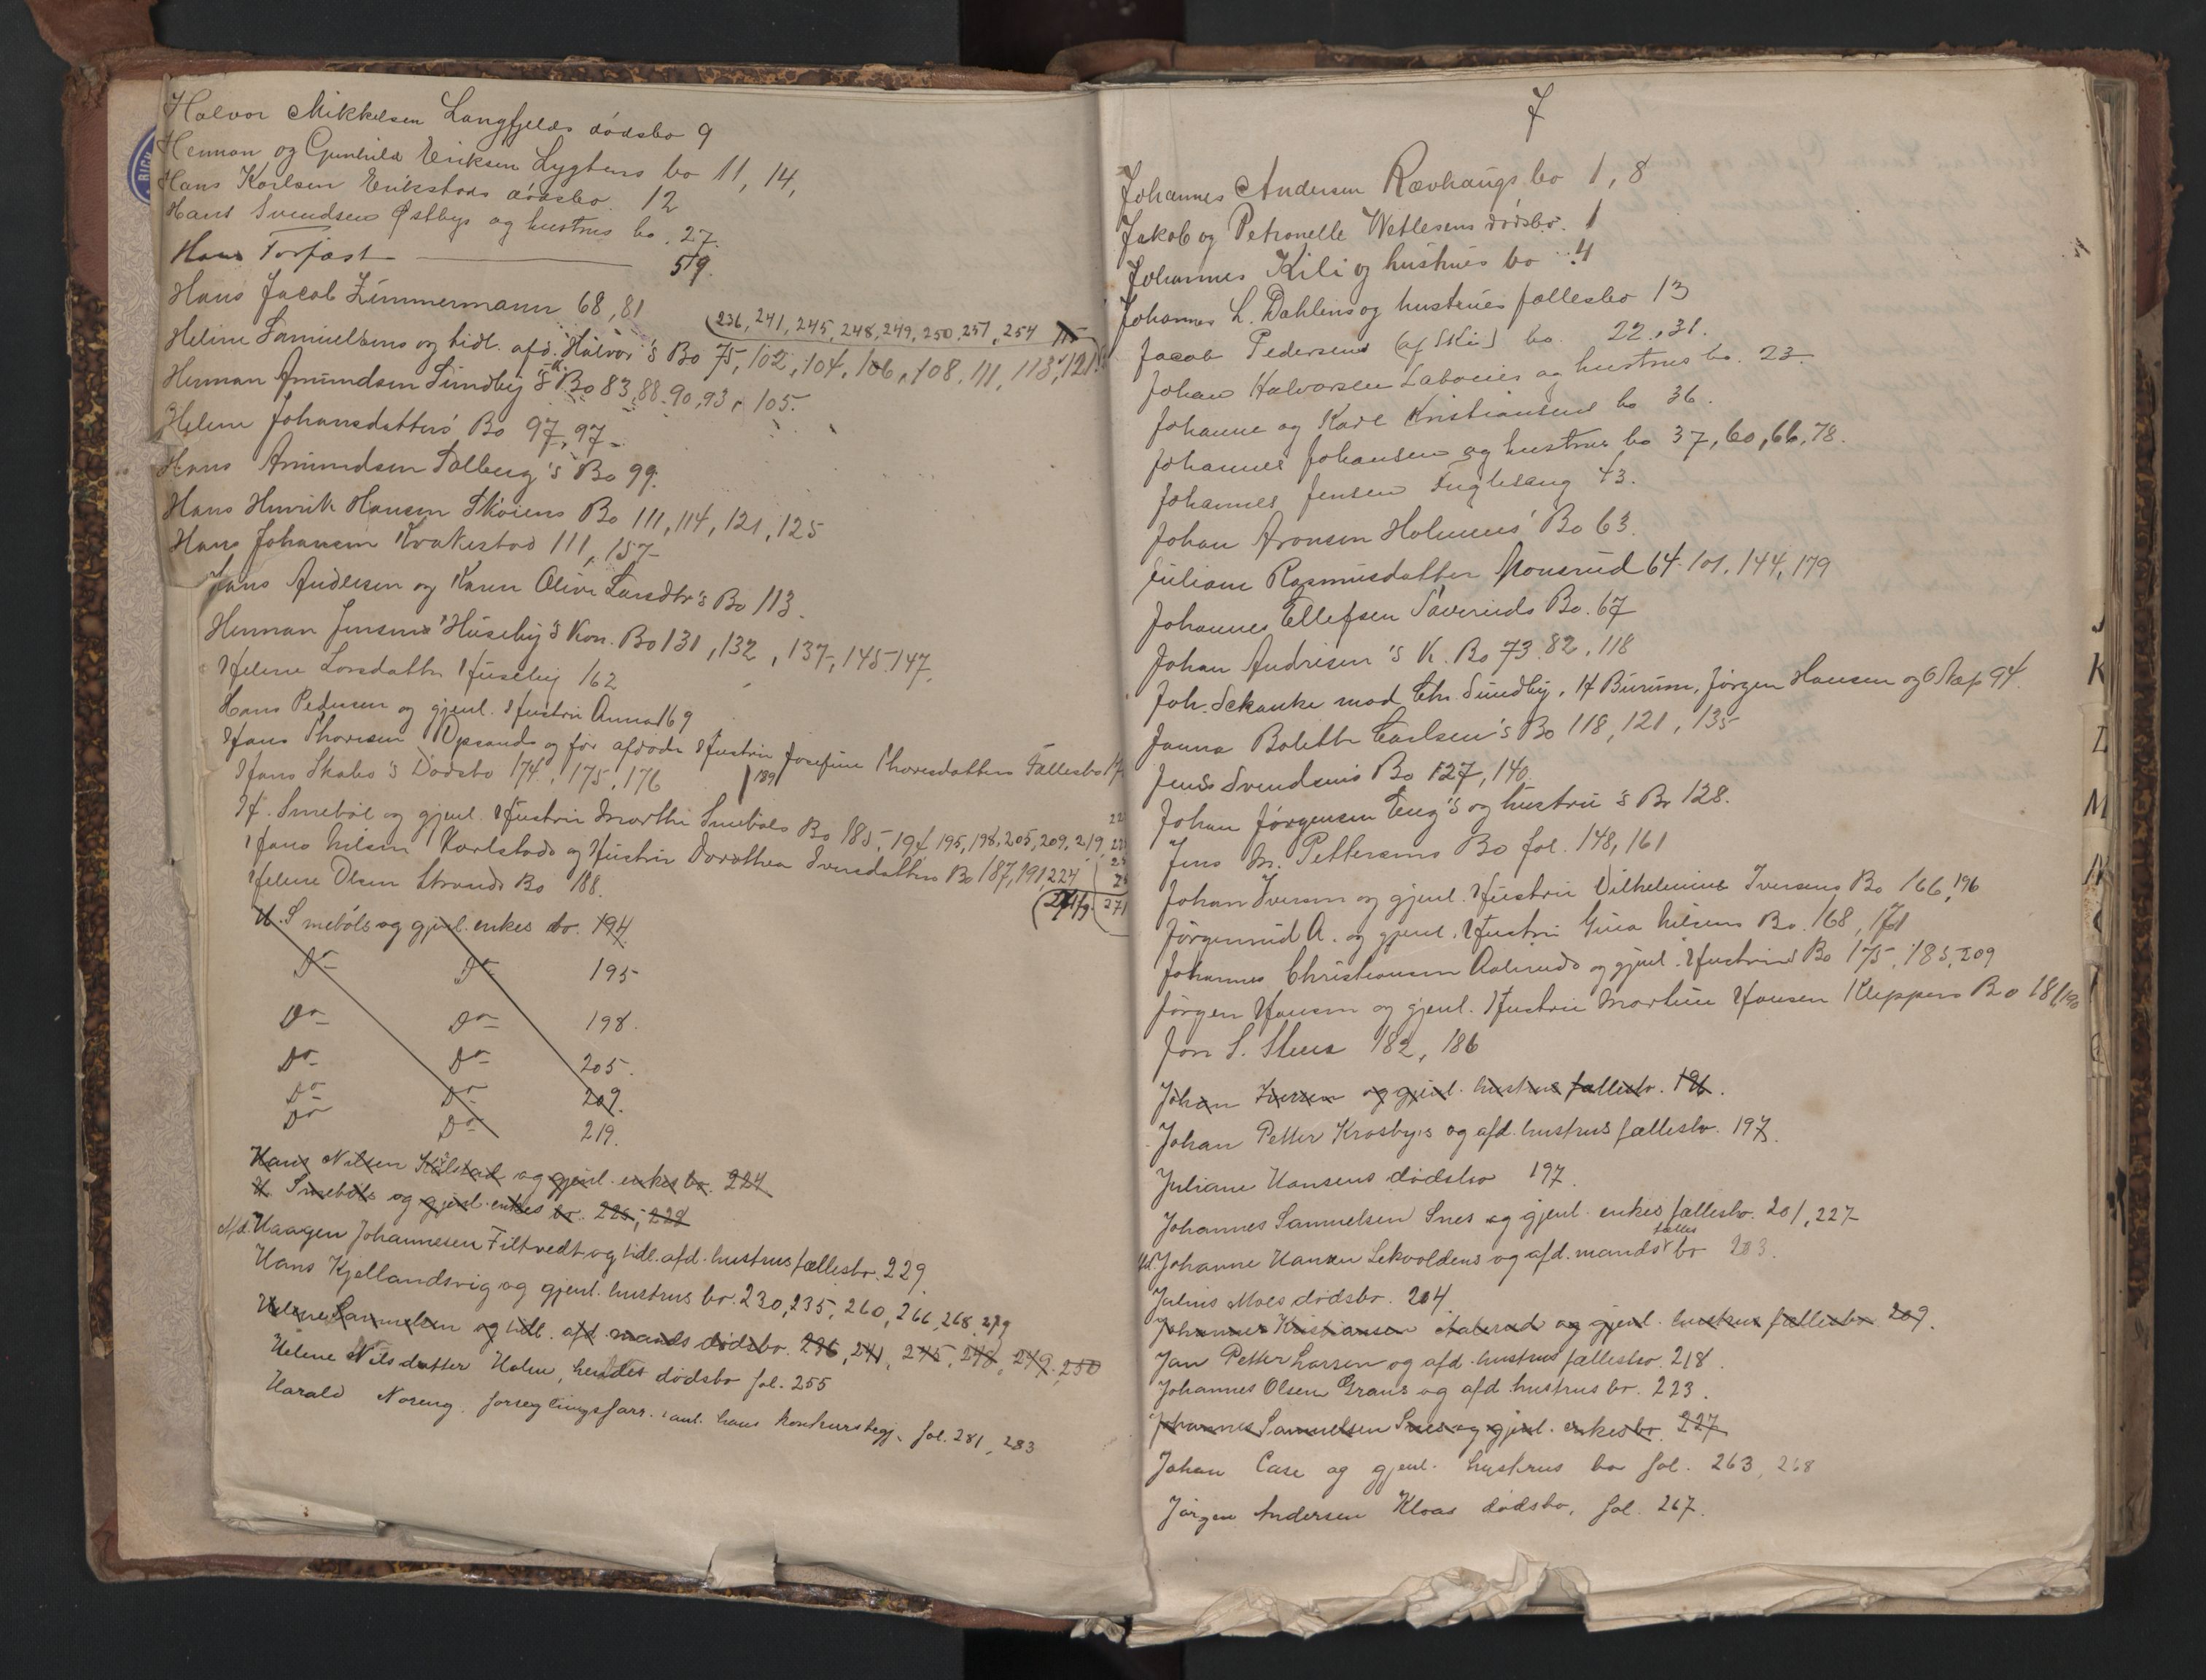 Halvor Mikkelsen Langfjelds dödsbo 9
Herman og Gunhild Eriksen Lygtens bo 11, 14,
Hans Karlsen Erikstads dödsbo. 12
Hans Svendsen Østbys og hustrus bo. 27.
Hans Torfast 59.
Hans Jacob Zimmermann 68, 81
(236, 241, 245, 248, 249, 250, 251, 254
Heline Samuelsens og tidl. afd. Halvor's Bo 75, 102, 104, 106, 108, 111, 113, 121
Herman Amundsen Sundby's Bo 83, 88. 90, 93, 105.
Helene Johansdatters Bo 97, 97
Hans Amundsen Solberg's Bo 99.
Hans Henrik Hansen Skøiens Bo 111, 114, 121, 125
Hans Johansen Krakestad 111, 157
Hans Andersen og Karen Oline Larsdtr's Bo 113.
Herman Jensens Huseby's Kon. Bo 131, 132, 137, 145. 147.
Helene Larsdatter Huseby 162
Hans Pedersen og gjenl. Hustru Anna 169
Hans Thoresen Opsands og før afdøde Hustru Josefine Thoresdatters Fællesbo
Hans Skabo's Dødsbo 174, 175, 176 189
H. Smebøl og gjenl. Hustru Marthe Smebøls Bo 185, 194, 195, 198, 205, 209, 219,
Hans Nilsen Karlstads og Hustru Dorothea Iversdatters Bo 187, 191, 224
Helene Olsen Strands Bo 188.
271
H. Smebøls og gjenl. enkes bo. 194
Do Do 195
Do Do 198.
Do Do 205.
Do Do 209.
Do Do 219.
Hans Nilsen Kålstad og gjenl. enkes bo. 224
H. Smebøls og gjenl. enkes bo. 225, 228
Afd. Haagen Johannesen Filtvedt og tidl. afd. hustrus fællesbo. 229.
Hans Kjellandsvig og gjenl. hustrus bo. 230, 235, 260, 266, 268, 279
Heline Samuelsen og tidl. afd. mands dödsbo. 236, 241, 245, 248, 249, 250
Helene Nilsdatter Holm, hendes dödsbo fol. 255
Harald Noreng. forseglingsforr. i anl. hans konkursbegj. fol. 281, 283
J
Johannes Andersen Rævhaugs bo 1, 8
Jakob og Petronelle Wetlesens dödsbo. 1
Johannes Kili og hustrues bo 4
Johannes L. Dahlens og hustrues fællesbo 13
Jacob Pedersens (af Ski) bo. 22, 31.
Johan Halvorsen Labours og hustrus bo. 23
Johanne og Karl Kristiansens bo 36.
Johannes Johansen og hustrus bo 37, 60, 66, 78.
Johannes Jensen Fuglesang 43.
Johan Aronsen Holmens' Bo 63.
Juliane Rasmusdatter Monsrud 64. 101, 144, 179
Johannes Ellefsen Sæveruds Bo. 67
Johan Andresen's K. Bo 73. 82, 118
Joh. Schanke mod Chr. Sundby, H Burum, Jørgen Hansen og O Næp 94.
Janna Bolette Carlsen's Bo 118, 121, 135
Jens Svendsens Bo 127, 140.
Johan Jørgensen Eng's og hustru's Bo 128.
Jens M. Pettersens Bo fol. 148, 161
Johan Iversen og gjenl. Hustru Vilhelmine Iversens Bo 166, 196
Jørgenrud A. og gjenl. Hustru Gina Nilsens Bo. 168, 171
Johannes Christiansen Aaleruds og gjenl. Hustrus Bo 175, 185, 209
Jørgen Hansen og gjenl. Hustru Martine Hansen Kleppens Bo 181, 190
Jon S. Steus 182, 186
Johan Iversen og gjenl. hustrus fællesbo. 196.
Johan Petter Krosby's og afd. hustrus fællesbo. 197.
Juliane Hansens dödsbo 197.
Johannes Samuelsen Snes og gjenl. enkes fællesbo. 201, 227
Afd. Johanne Hansen Sekvoldens og afd. mands fælles bo 203.
Julius Moes dödsbo. 204.
Johannes Kristiansen Aalerud og gjenl. hustrus fællesbo 209.
Jan Petter Larsen og afd. hustrus fællesbo. 218.
Johannes Olsen Graus og afd hustrus bo. 223.
Johannes Samuelsen Snes og gjenl. enkes bo. 227
Johan Case og gjenl. hustrus bo fol. 263, 268
Jörgen Andersen Kloas dödsbo, fol. 267.
J
K
L
M
N